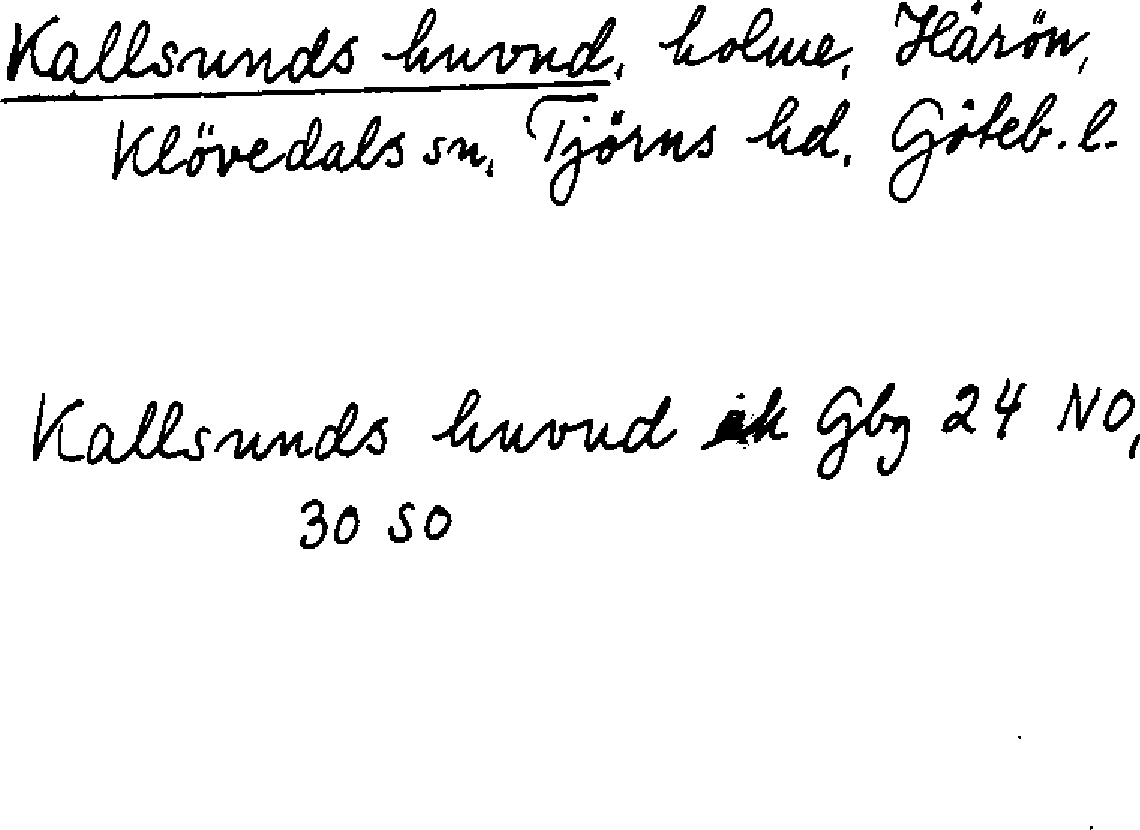 Kallsunds huvud, holme, Härön,
Klövedals sn, Tjörns hd, Göteb. l.
Kallsunds huvud ek Gbg 24 NO,
30 SO